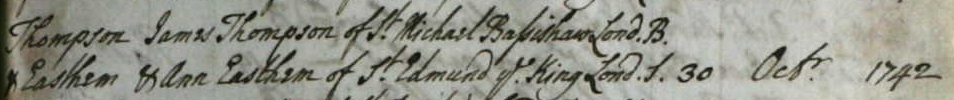 Thompson James Thompson of St. Michael Baſsishaw Lond. B.
& Easthem & Ann Easthem of St. Edmund ye. King Lond. S. 30 Octr. 1742